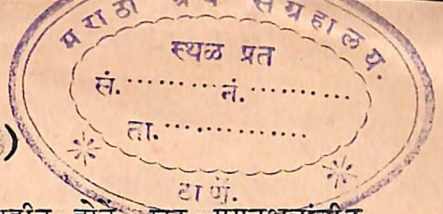 मराठी ग्रंथ संग्रहालय.
स्थळ प्रत
सं. .......... नं. ..........
ता. ...............
ठाणें.